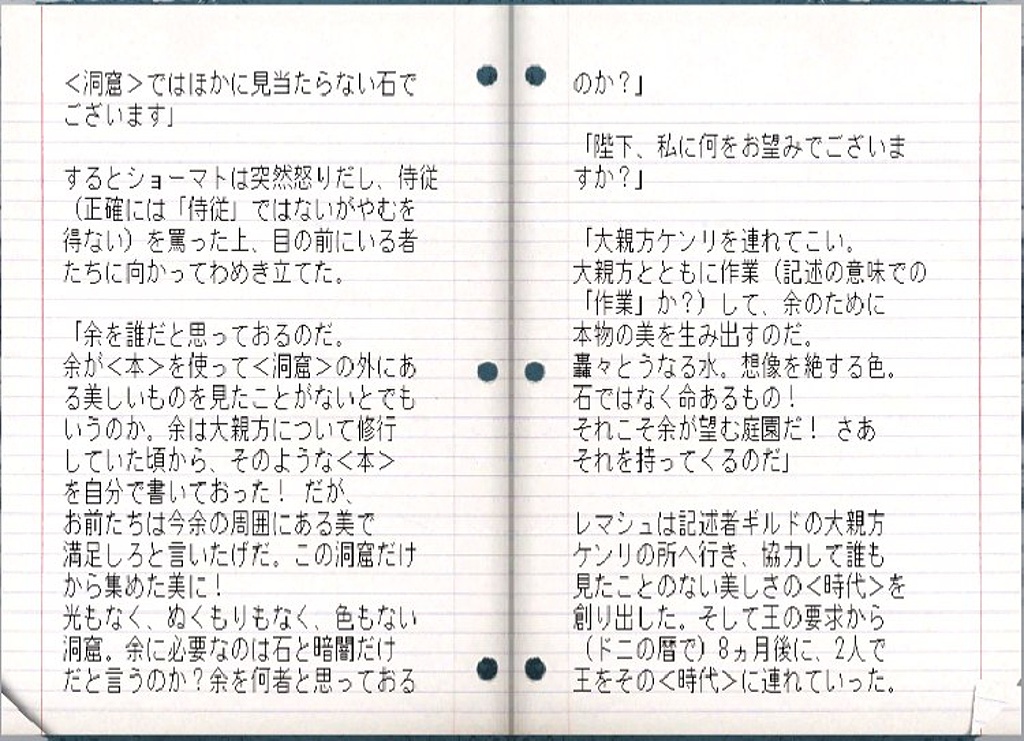 <洞窟>ではほかに見当たらない石で
ございます」
するとショーマトは突然怒りだし、侍従
（正確には「侍従」ではないがやむを
得ない）を罵った上、目の前にいる者
たちに向かってわめき立てた。
「余を誰だと思っておるのだ。
余が<本>を使って<洞窟>の外にあ
る美しいものを見たことがないとでも
いうのか。余は大親方について修行
していた頃から、そのような<本>
を自分で書いておった！ だが、
お前たちは今余の周囲にある美で
満足しろと言いたげだ。この洞窟だけ
から集めた美に！
光もなく、ぬくもりもなく、色もない
洞窟。余に必要なのは石と暗闇だけ
だと言うのか？余を何者と思っておる
のか？」
「陛下、私に何をお望みでございま
すか？」
「大親方ケンリを連れてこい。
大親方とともに作業（記述の意味での
「作業」か？）して、余のために
本物の美を生み出すのだ。
轟々とうなる水。想像を絶する色。
石ではなく命あるもの！
それこそ余が望む庭園だ！ さあ
それを持ってくるのだ」
レマシュは記述者ギルドの大親方
ケンリの所へ行き、協力して誰も
見たことのない美しさの<時代>を
創り出した。そして王の要求から
（ドニの暦で）8ヵ月後に、2人で
王をその<時代>に連れていった。